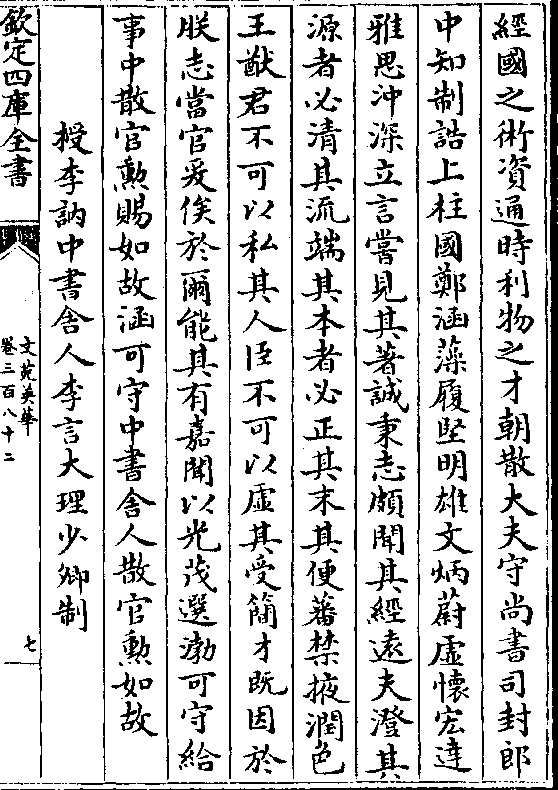 經國之術資通時利物之才朝散大夫守尚書司封郎
中知制誥上柱國鄭涵藻履堅明雄文炳蔚虛懷宏達
雅思沖深立言嘗見其著誠秉志頗聞其經遠夫澄其
源者必清其流端其本者必正其末其便蕃禁掖潤色
王猷君不可以私其人臣不可以虛其受簡才既因於
朕志當官爰俟於爾能其有嘉聞以光茂選渤可守給
事中散官勲賜如故涵可守中書舍人散官勲如故
授李訥中書舍人李言大理少卿制
欽定四庫全書
文苑英華
卷三百八十二
七